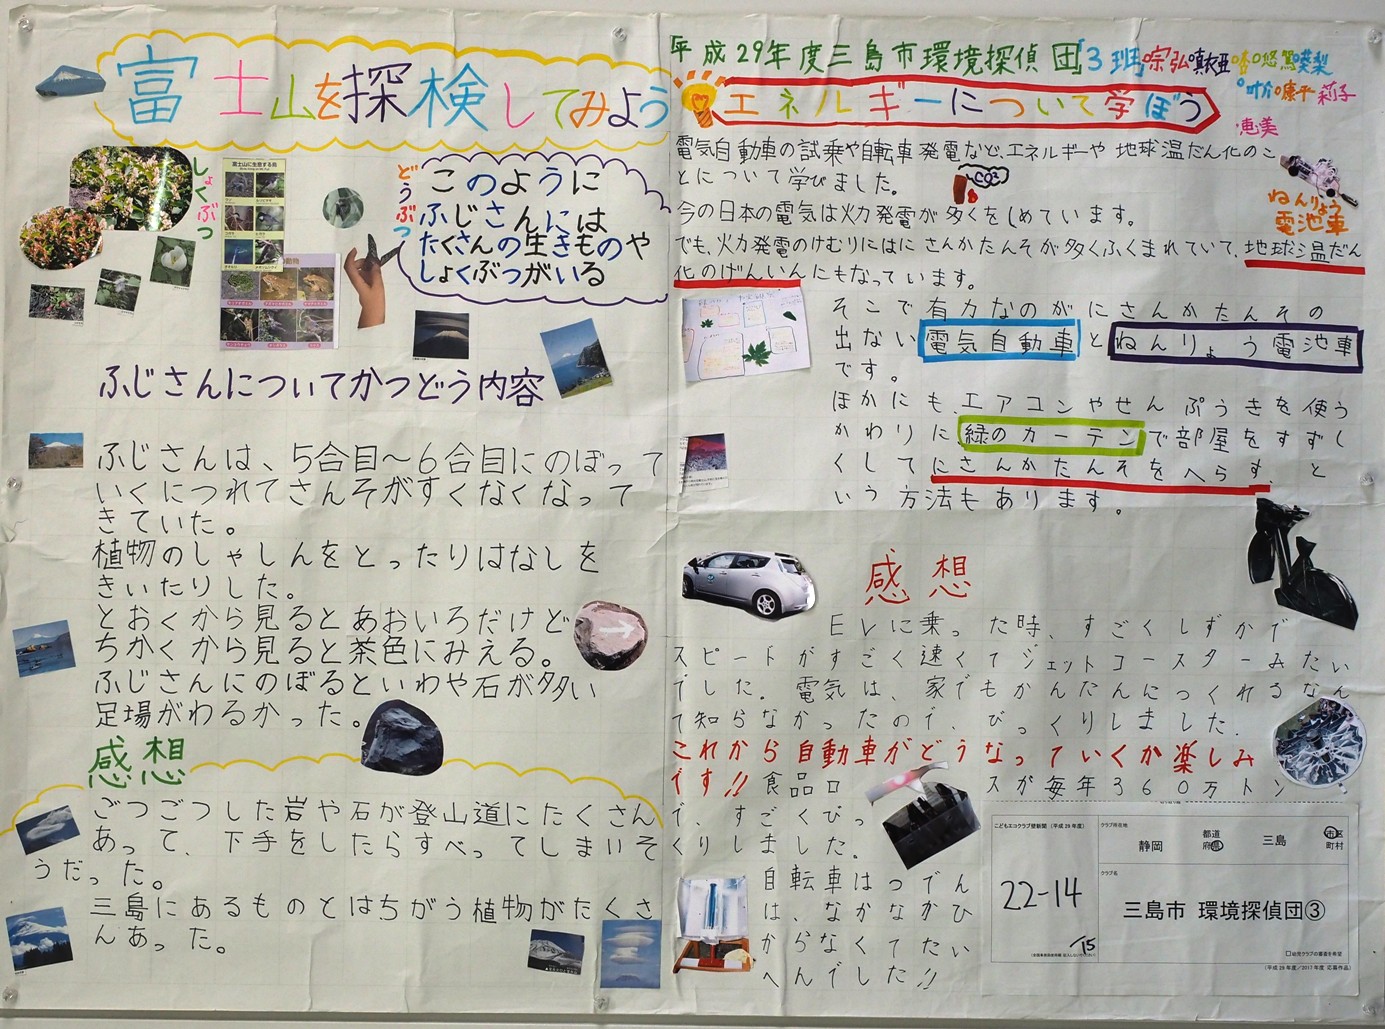 富士山を探検してみよう
しょくぶつ
富士山に生息する鳥
どうぶつ
このように
ふじさんには
たくさんの生きものや
しょくぶつがいる
ふじさんについてかつどう内容
ふじさんは、5合目～6合目にのぼって
いくにつれてさんそがすくなくなって
きていた。
植物のしゃしんをとったりはなしを
きいたりした。
とおくから見るとあおいろだけど
ちかくから見ると茶色にみえる。
ふじさんにのぼるといわや石が多い
足場がわるかった。
感想
ごつごつした岩や石が登山道にたくさん
あって、下手をしたらすべってしまいそ
うだった。
三島にあるものとはちがう植物がたくさ
んあった。
「平成29年度三島市環境探偵団」3班
康平 莉子
恵美
エネルギーについて学ぼう
電気自動車の試乗や自転車発電など、エネルギーや地球温だん化のこ
とについて学びました。
CO2
ねんりょう
電池車
今の日本の電気は火力発電が多くをしめています。
でも、火力発電のけむりにはにさんかたんそが多くふくまれていて、地球温だん
化のげんいんにもなっています。
そこで有力なのがにさんかたんその
出ない電気自動車とねんりょう電池車
です。
ほかにも、エアコンやせんぷうきを使う
かわりに、緑のカーテンで部屋をすずし
くしてにさんかたんそをへらすと
いう方法もあります。
感想
EVに乗った時、すごくしずかで
スピードがすごく速くてジェットコースターみたい
でした。電気は、家でもかんたんにつくれるなん
て知らなかったので、びっくりしました。
これから自動車がどうなっていくか楽しみ
です!! 食品ロスが毎年360万トン
で、すごくびっ
くりしました。
自転車はつでん
は、なかなかひ
からなくてたい
へんでした!!
こどもエコクラブ壁新聞（平成29年度）
22-14
15
クラブ所在地
静岡 都道府県 三島 市区町村
クラブ名
三島市 環境探偵団③
□幼児クラブの審査を希望
（平成29年度／2017年度 応募作品）